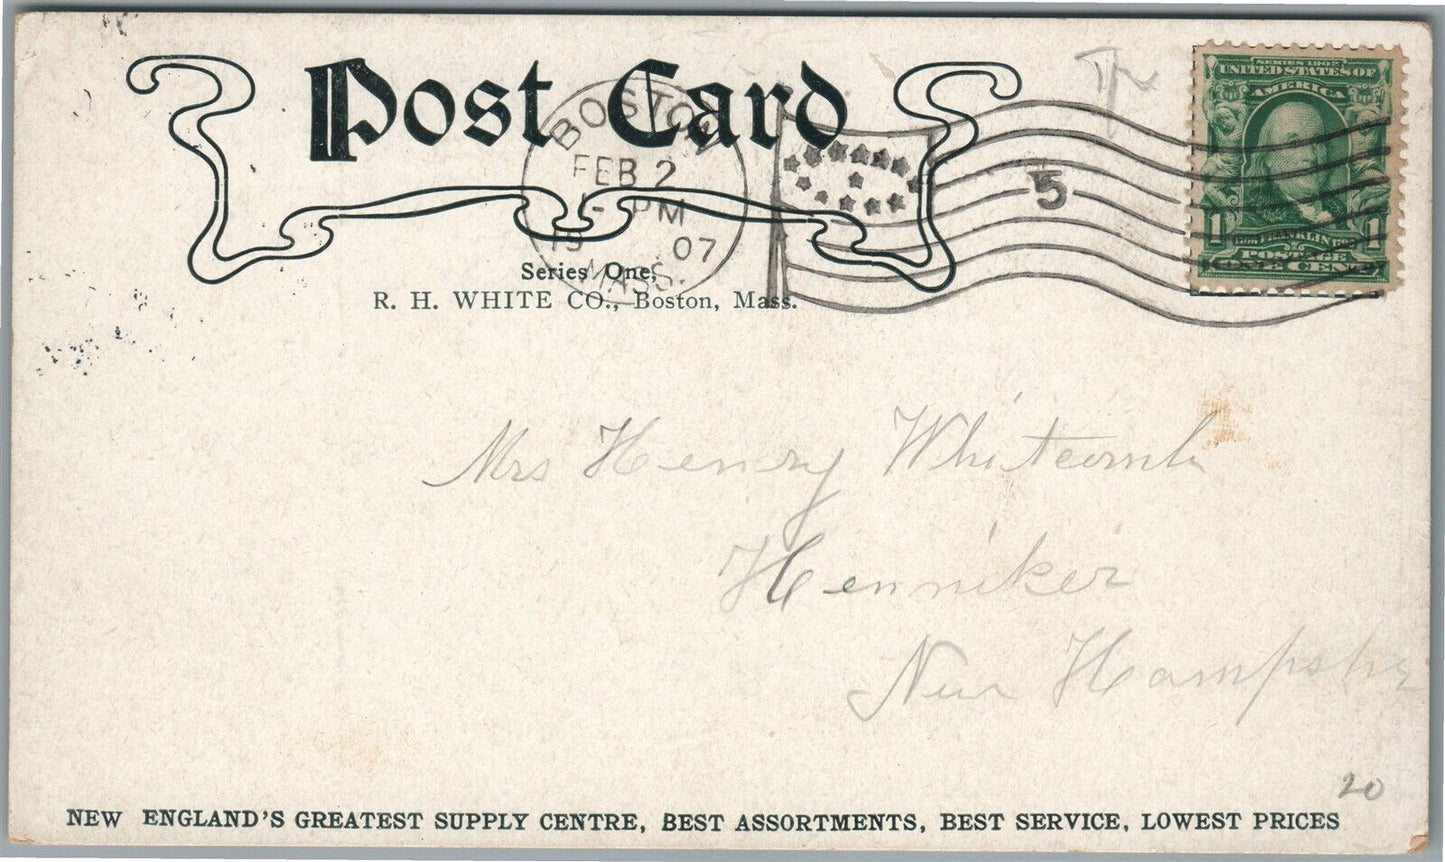 Post Card
BOSTON
FEB 2
1- PM
19 07
MASS.
5
SERIES 1902
UNITED STATES OF
AMERICA
1 FRANKLIN 1
POSTAGE
ONE CENT
Series One,
R. H. WHITE CO., Boston, Mass.
Mrs Henry Whitcomb
Henniker
New Hampshr
20
NEW ENGLAND'S GREATEST SUPPLY CENTRE, BEST ASSORTMENTS, BEST SERVICE, LOWEST PRICES